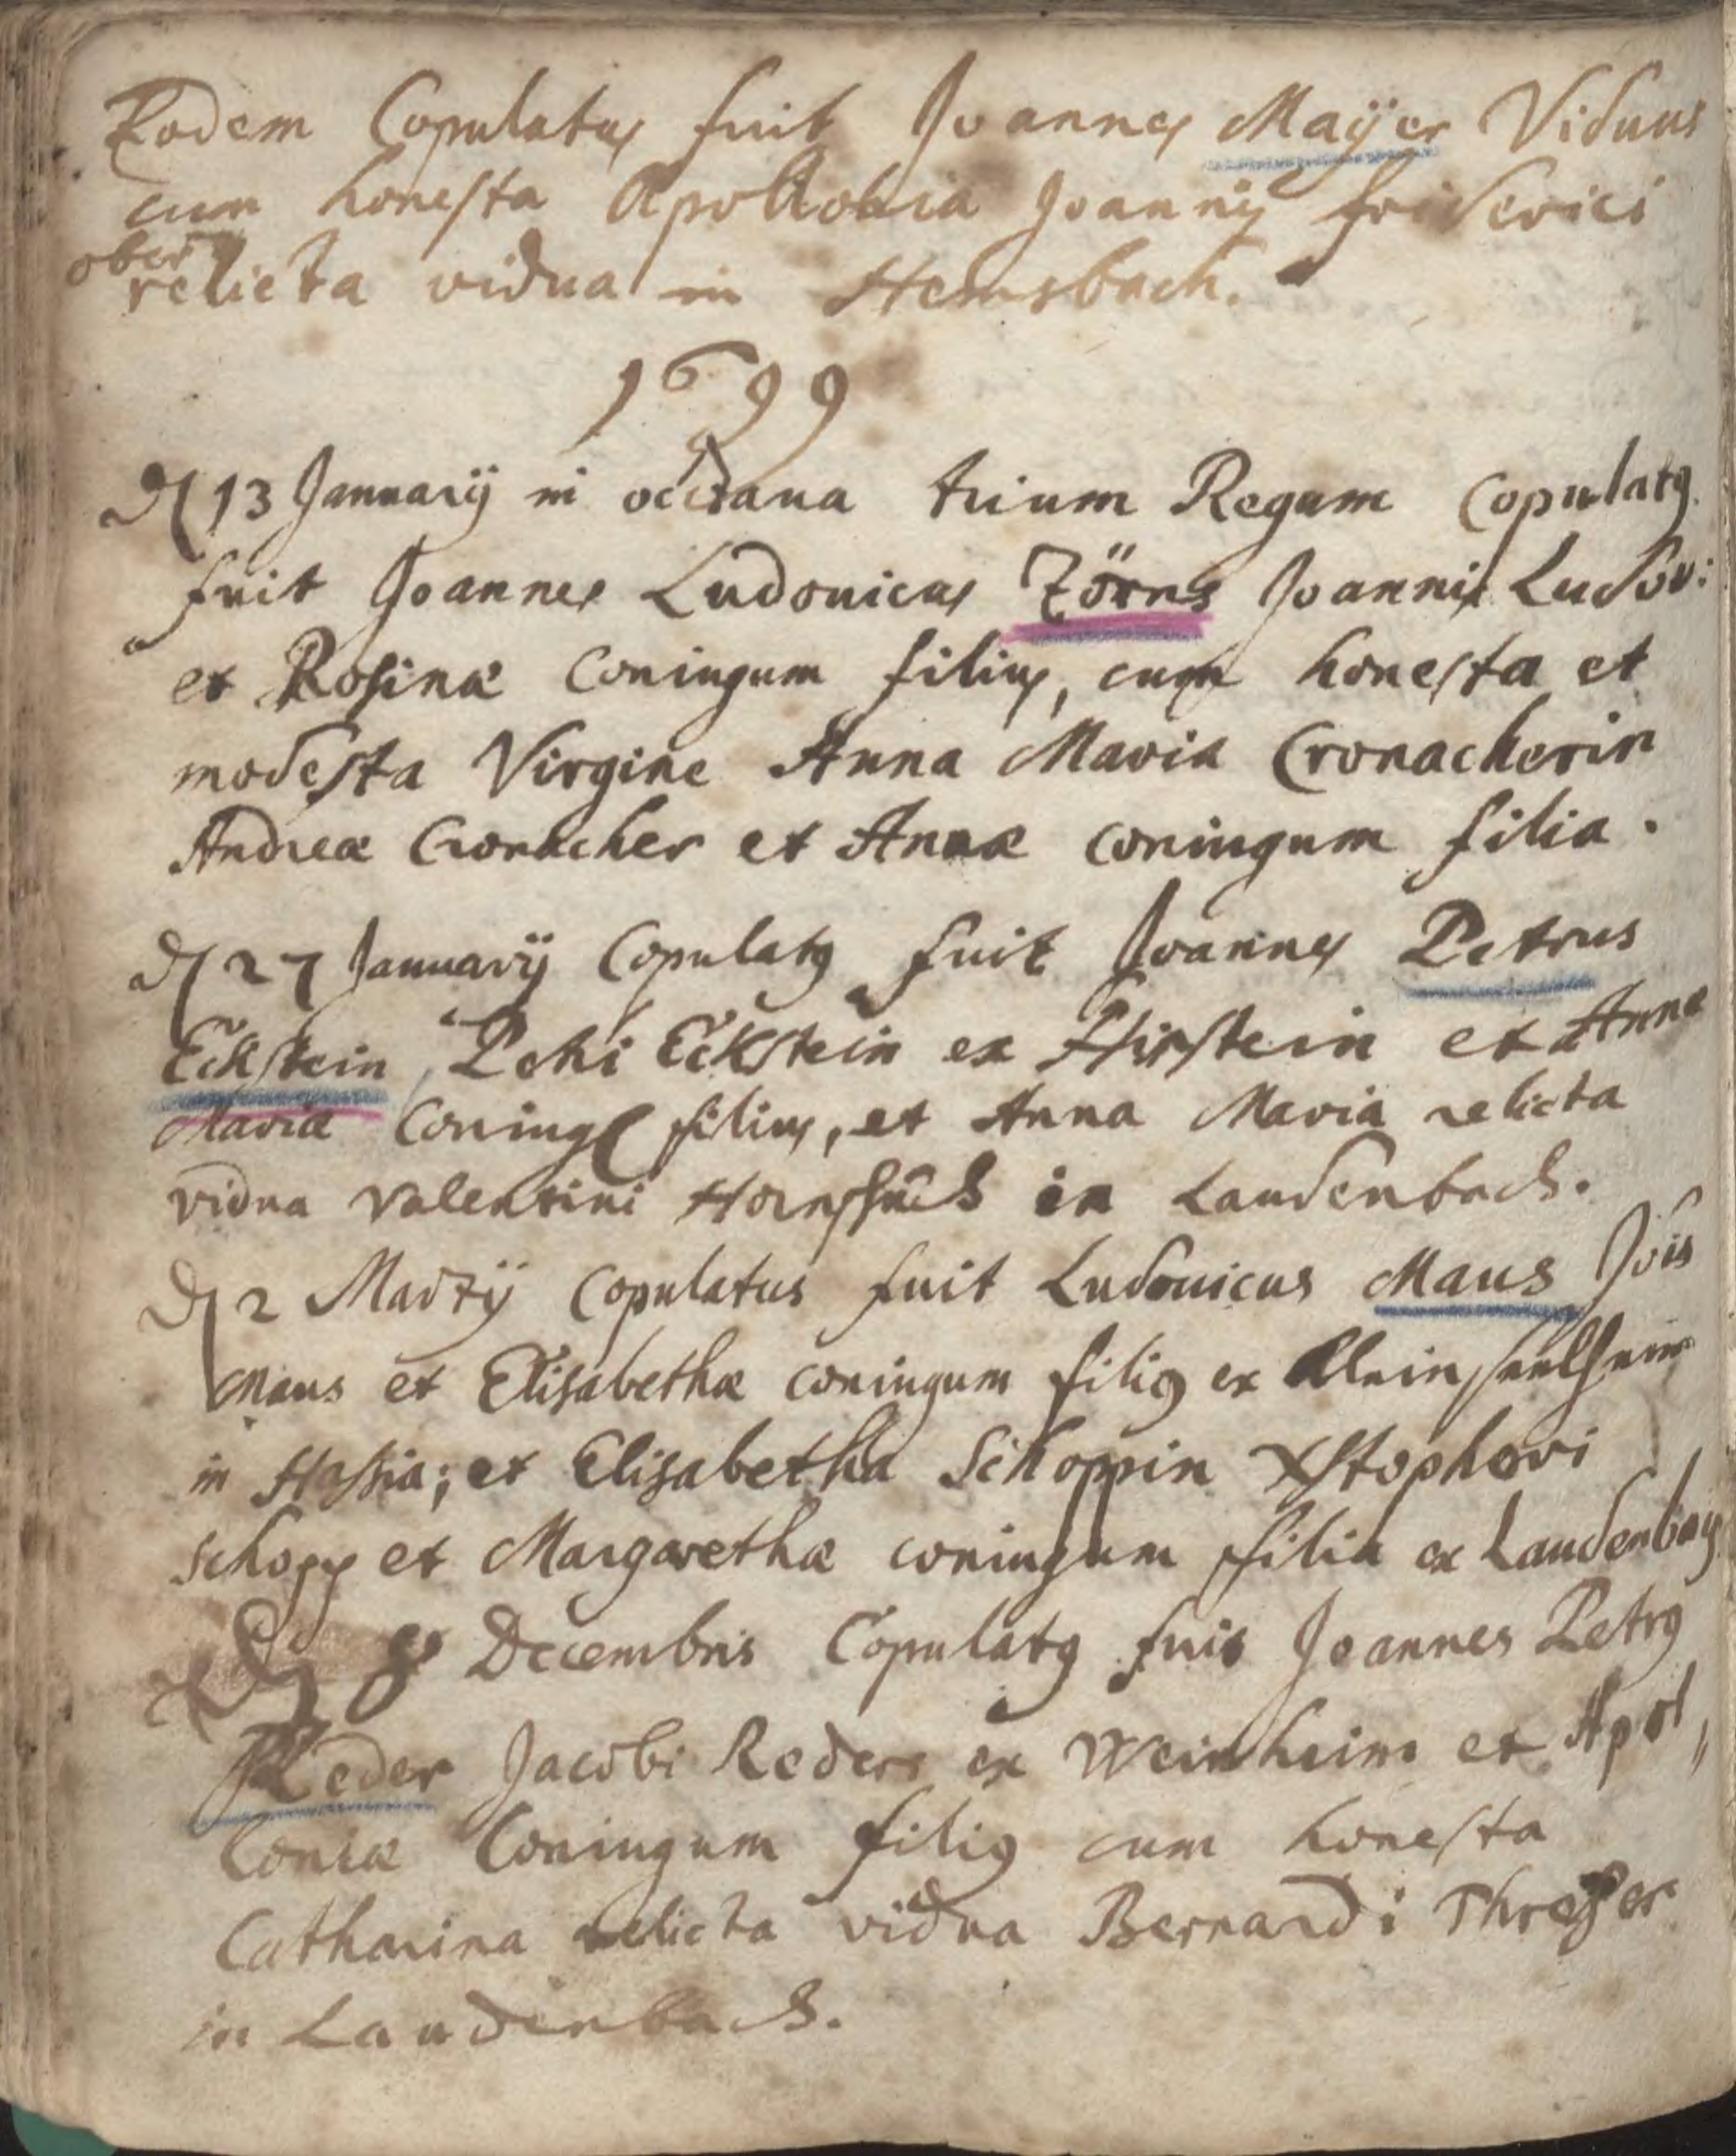 Eodem Copulatus fuit Joannes Maÿer Viduus
cum honesta Apollonia Joannis friderici
ober
relicta vidua in Hemsbach.
1699
D 13 Januarÿ in octava trium Regum Copulatq
fuit Joannes Ludovicus Zörns Joannis Ludov:
et Rosinæ Coniugum filius, cum honesta et
modesta Virgine Anna Maria Cronacherin
Andreæ Cronacher et Annæ coniugum filia.
D 27 Januarÿ Copulatq fuit Joannes Petrus
Eckstein, Petri Eckstein ex Hirstein et Annæ
Mariæ Coniug filius, et Anna Maria relicta
vidua Valentini in Laudenbach.
D 2 Martÿ Copulatus fuit Ludovicus Maus Jois
Maus et Elisabethæ coniugum filiq ex
in Hassia; et Elisabetha Schoppin Xstophori
Schopp et Margarethæ coniugum filia ex Laudenbach
D 8 Decembris Copulatq fuit Joannes Petrq
Reder Jacobi Reders ex Weinheim et Apol„
loniæ Coniugum filiq cum honesta
Catharina relicta vidua Bernardi
in Laudenbach.